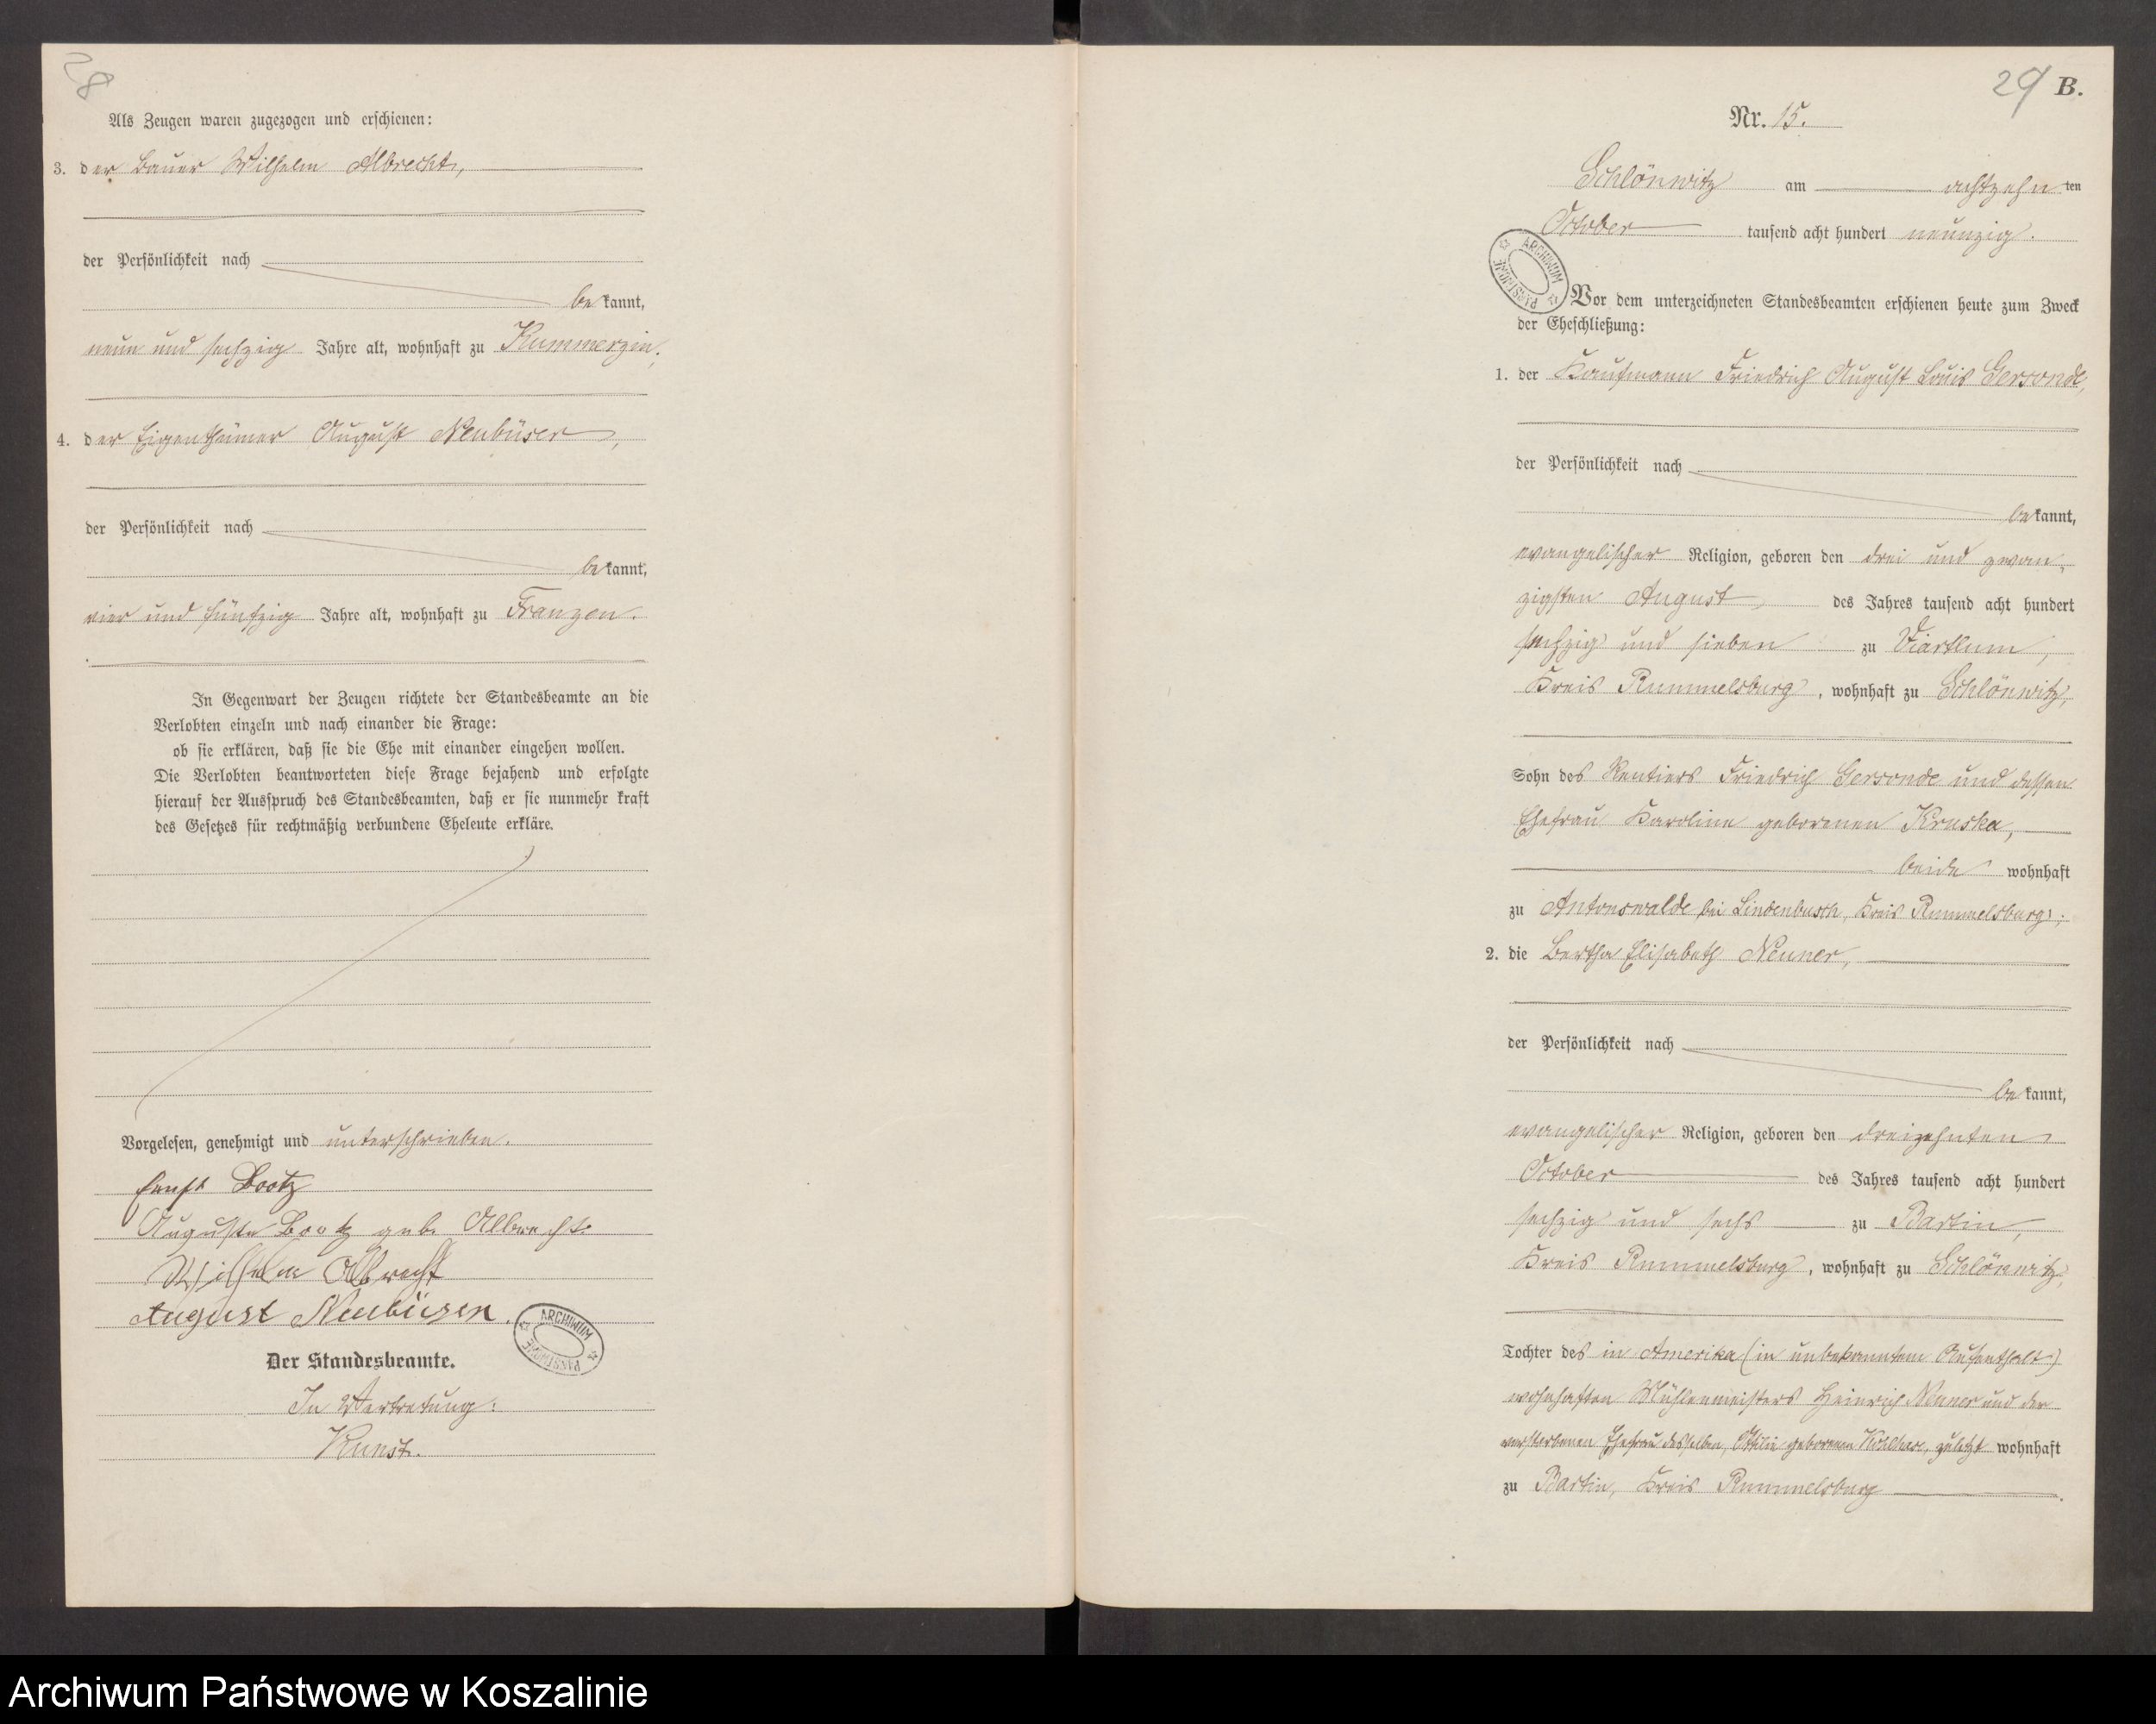 28
Als Zeugen waren zugezogen und erschienen:
3. der Bauer Wilhelm Albrecht,
der Persönlichkeit nach
bekannt,
neun und sechzig Jahre alt, wohnhaft zu Kummerzin,
4. der Eigenthümer August Neubüser,
der Persönlichkeit nach
bekannt,
vier und fünfzig Jahre alt, wohnhaft zu Franzen.
In Gegenwart der Zeugen richtete der Standesbeamte an die
Verlobten einzeln und nach einander die Frage:
ob sie erklären, daß sie die Ehe mit einander eingehen wollen.
Die Verlobten beantworteten diese Frage bejahend und erfolgte
hierauf der Ausspruch des Standesbeamten, daß er sie nunmehr kraft
des Gesetzes für rechtmäßig verbundene Eheleute erkläre.
Vorgelesen, genehmigt und unterschrieben.
Ernst Bootz
Auguste Bootz geb. Albrecht.
Wilhelm Albrecht
August Neubüser.
ARCHIWUM PAŃSTWOWE
Der Standesbeamte.
In Vertretung:
Kunst.
29 B.
Nr. 15.
Schlönwitz am achtzehnten
October tausend acht hundert neunzig.
ARCHIWUM PAŃSTWOWE
Vor dem unterzeichneten Standesbeamten erschienen heute zum Zweck
der Eheschließung:
1. der Kaufmann Friedrich August Louis Gersonde,
der Persönlichkeit nach
bekannt,
evangelischer Religion, geboren den drei und zwan-
zigsten August des Jahres tausend acht hundert
sechzig und sieben zu Viartlum,
Kreis Rummelsburg, wohnhaft zu Schlönwitz,
Sohn des Rentiers Friedrich Gersonde und dessen
Ehefrau Karoline geborenen Kruska,
beide wohnhaft
zu Antonswalde bei Lindenbusch, Kreis Rummelsburg;
2. die Bertha Elisabeth Neuner,
der Persönlichkeit nach
bekannt,
evangelischer Religion, geboren den dreizehnten
October des Jahres tausend acht hundert
sechzig und sechs zu Bartin,
Kreis Rummelsburg, wohnhaft zu Schlönwitz,
Tochter des in Amerika (in unbekanntem Aufenthalt)
wohnhaften Mühlenmeisters Heinrich Neuner und der
verstorbenen Ehefrau desselben, Ottilie geborenen zuletzt wohnhaft
zu Bartin, Kreis Rummelsburg.
Archiwum Państwowe w Koszalinie